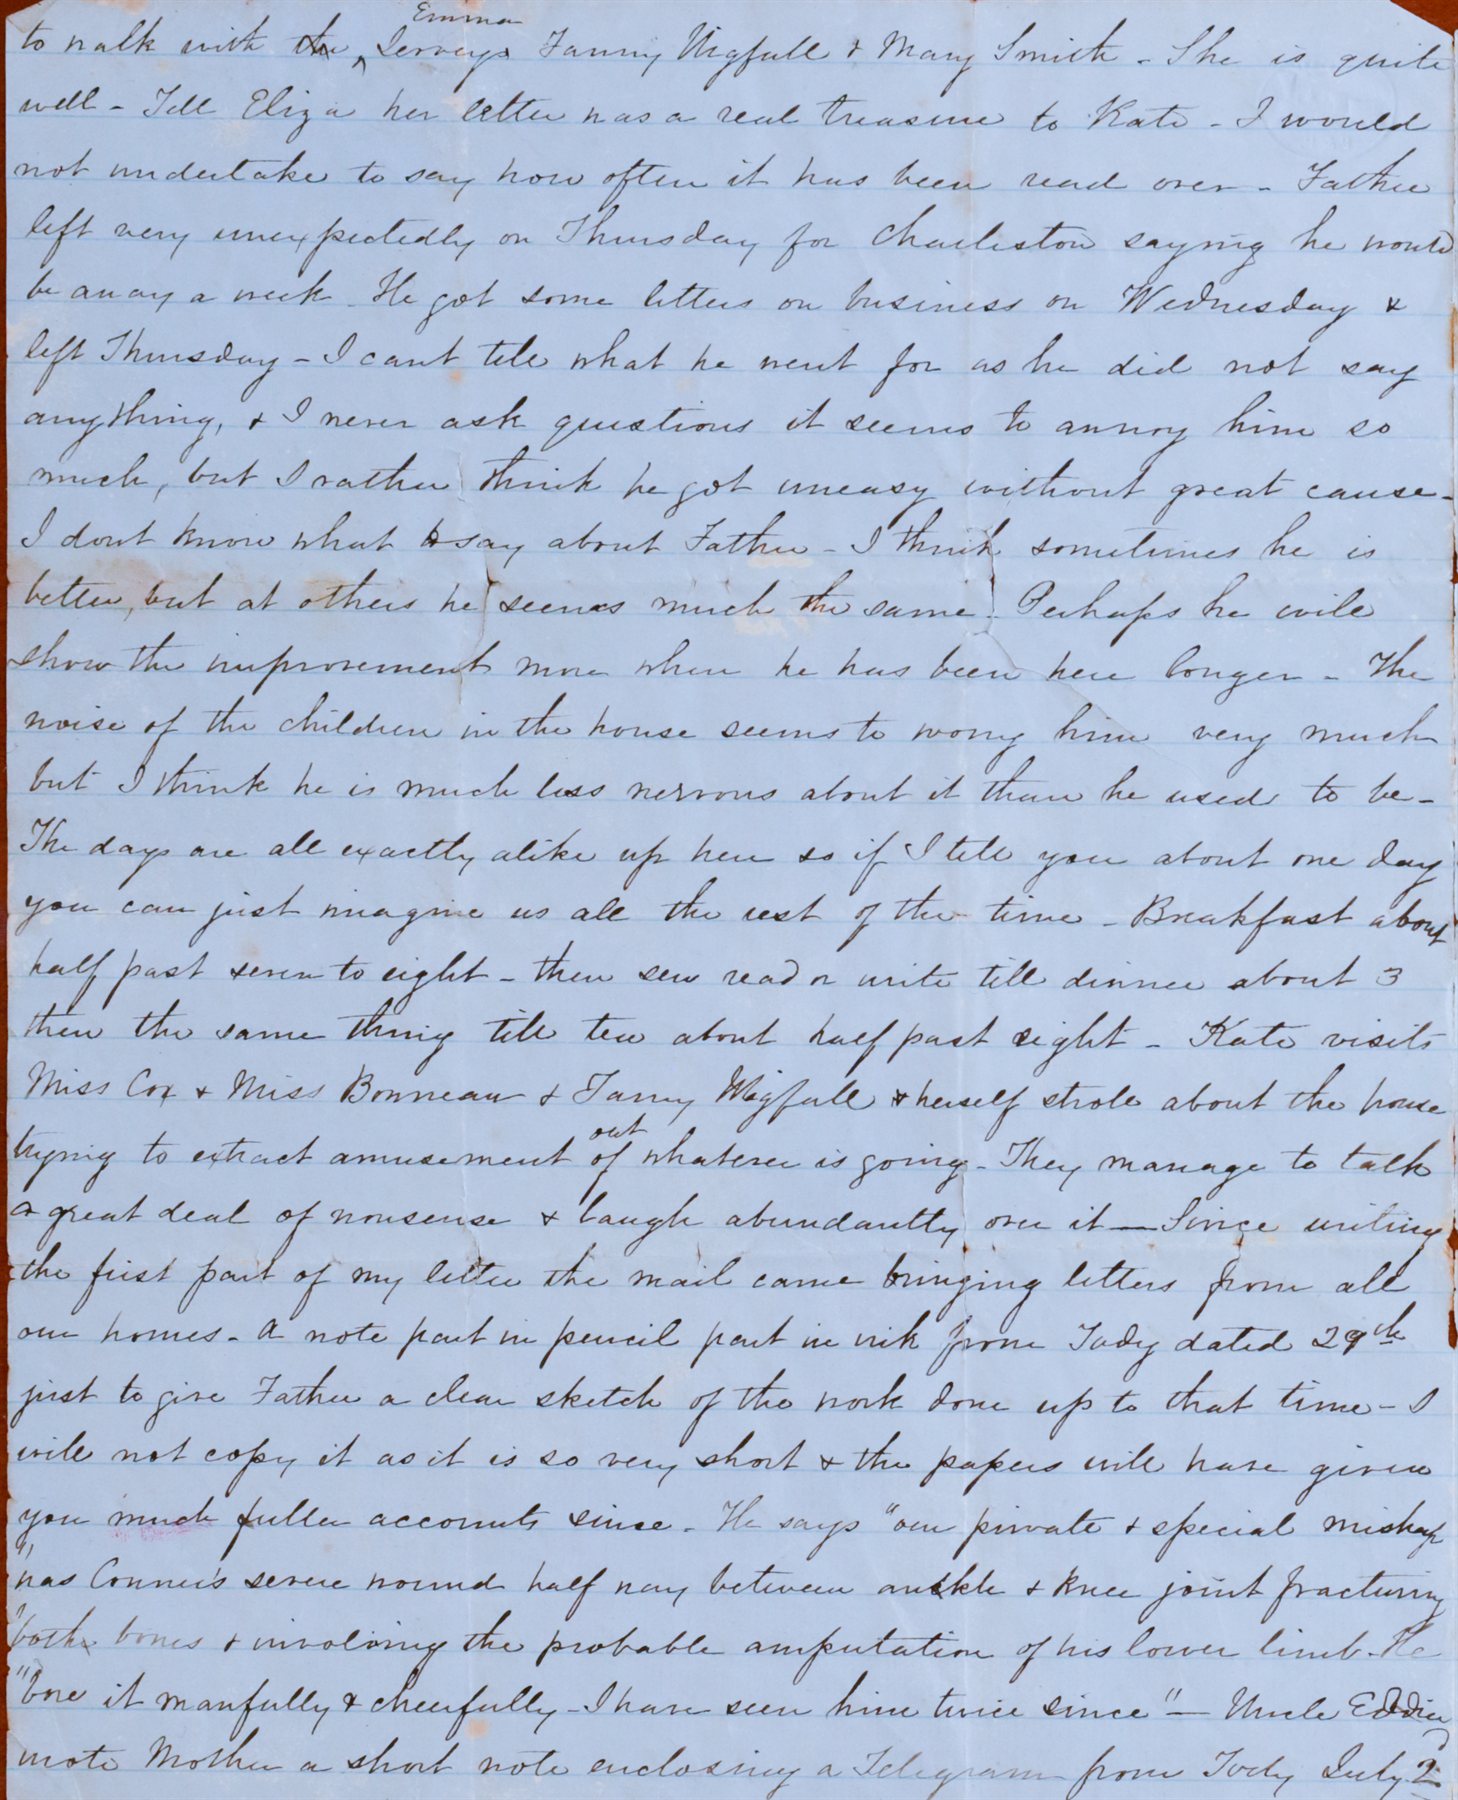 to walk with the Emma Serveys Fanny Wigfall & Mary Smith - She is quite
well - Tell Eliza her letter was a real treasure to Kate - I would
not undertake to say how often it has been read over - Father
left very unexpectedly on Thursday for Charleston saying he would
be away a week - He got some letters on business on Wednesday &
left Thursday - I cant tell what he went for as he did not say
anything, & I never ask questions it seems to annoy him so
much, but I rather think he got uneasy without great cause -
I dont know what to say about Father - I think sometimes he is
better, but at others he seems much the same. Perhaps he will
show the improvement more when he has been here longer - The
noise of the children in the house seems to worry him very much
but I think he is much less nervous about it than he used to be -
The days are all exactly alike up here so if I tell you about one day
you can just imagine us all the rest of the time - Breakfast about
half past seven to eight - then sew read or write till dinner about 3
then the same thing till tea about half past eight - Kate visits
Miss Cox & Miss Bonneau & Fanny Wigfall & herself strole about the house
trying to extract amusement out of whatever is going - They manage to talk
a great deal of nonsense & laugh abundantly over it — Since writing
the first part of my letter the mail came bringing letters from all
our homes - A note part in pencil part in ink from Tody dated 29th
just to give Father a clear sketch of the work done up to that time - I
will not copy it as it is so very short & the papers will have given
you much fuller accounts since - He says "our private & special mishap
"was Conner's severe wound half way between ankle & knee joint fracturing
"both bones & involving the probable amputation of his lower limb - He
"bore it manfully & cheerfully - I have seen him twice since" — Uncle Eddie
wrote Mother a short note enclosing a Telegram from Tody July 2d